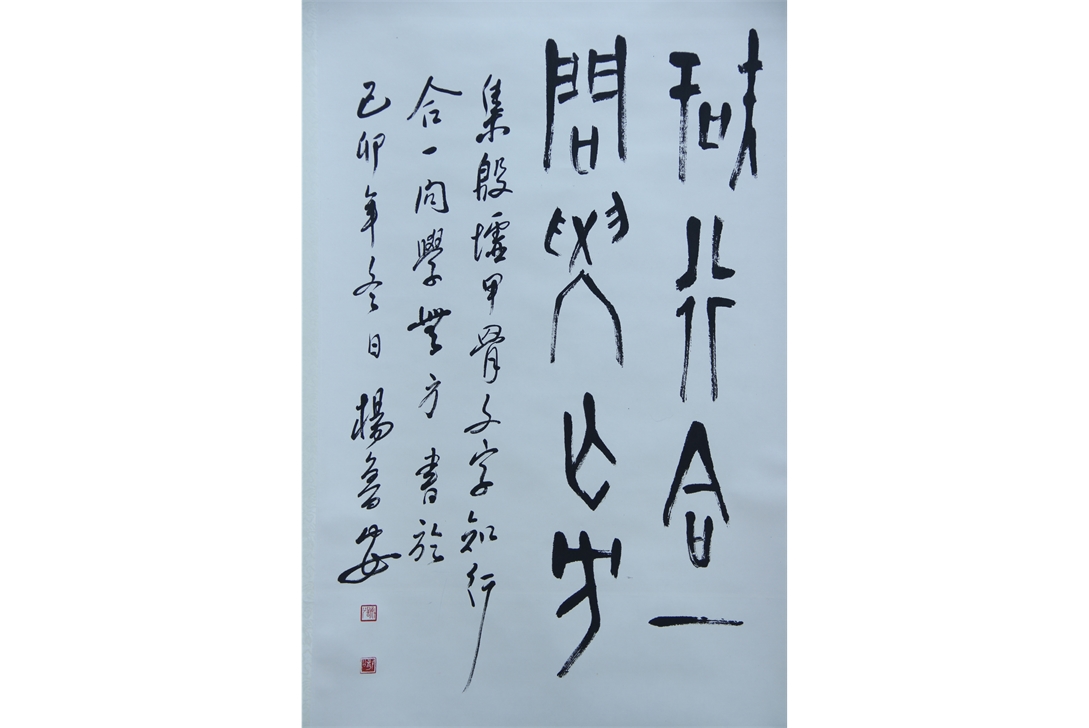 知行合一
問學無方
集殷墟甲骨文字知行
合一問學無方書於
己卯年冬日楊魯安